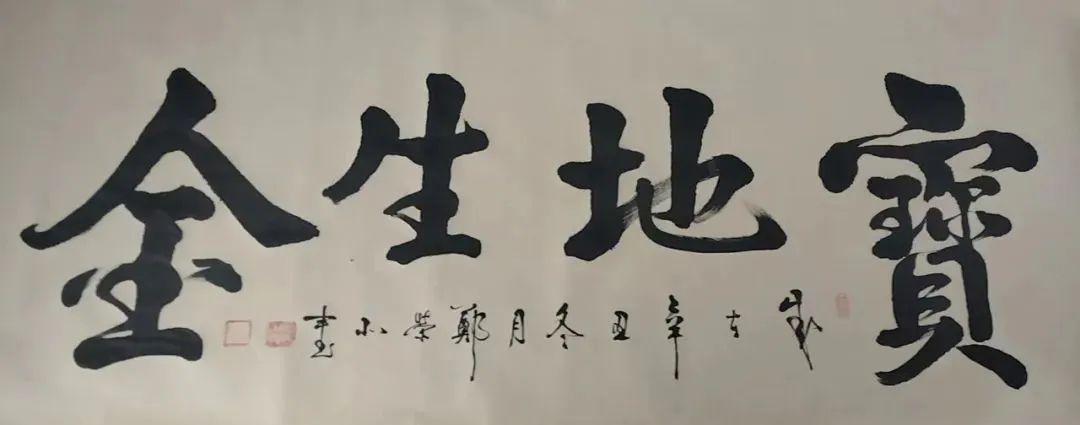 寶地生金
歲在辛丑冬月鄭榮小書